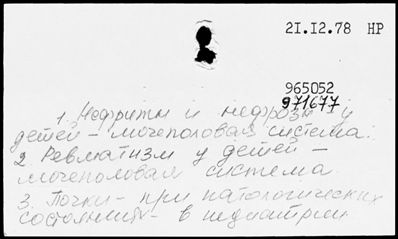 21.12.78 НР
965052
971677
1. Нефриты и нефрозы у
детей - мочеполовая система.
2. Ревматизм у детей -
мочеполовая система
3. Почки - при патологических
состояниях - в педиатрии.